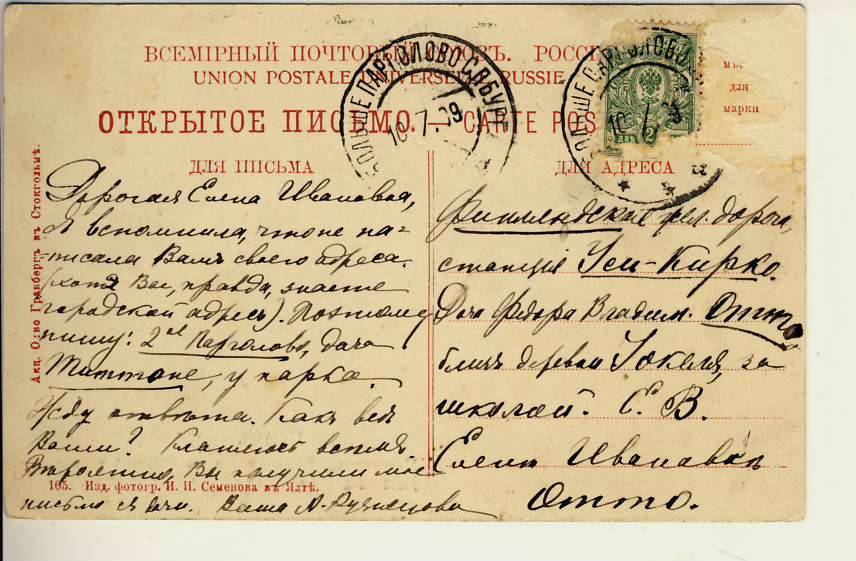 ВСЕМІРНЫЙ ПОЧТОВЫЙ СОЮЗЪ. РОССІ
UNION POSTALE UNIVERSELLE RUSSIE
ОТКРЫТОЕ ПИСЬМО. — CARTE POS
для
марки
БОЛЬШЕ ПАРГОЛОВО С.П.БУРГ.
10 7 09
БОЛЬШЕ ПАРГОЛОВО
10 7 09
2
ДЛЯ ПИСЬМА
Дорогая Елена Ивановна,
я вспомнила, что не на-
-писала Вамъ своего адреса.
(хотя Вы, правда, знаете
городской адресъ). Поэтому
пишу: 2ое Парголово, дача
у парка.
Жду отвѣта. Какъ всѣ
Ваши? Кланяюсь всѣмъ.
Вѣроятно, Вы получили мое
письмо Ваша А. Кузнецова
ДЛЯ АДРЕСА
Финляндская жел. дорога,
станція Уси-Кирко.
Дача Федора Владим. Отто
близъ деревни за
школой. Е. В.
Елене Ивановнѣ
Отто.
Акц. О-во Гранбергъ въ Стокгольмѣ.
105. Изд. фотогр. И. И. Семенова въ Ялтѣ.